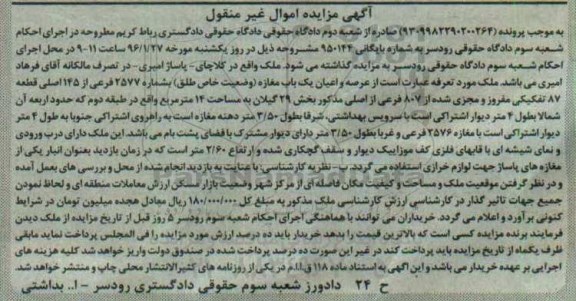 آگهی مزایده اموال غیر منقول
به موجب پرونده (۹۳۰۹۹۸۲۲۹۰۲۰۰۲۶۴) صادره از شعبه دوم دادگاه حقوقی دادگاه حقوقی دادگستری رباط کریم مطروحه در اجرای احکام
شعبه سوم دادگاه حقوقی رودسر به شماره بایگانی ۹۵۰۱۴۴ مشروحه ذیل در روز یکشنبه مورخه ۹۶/۱/۲۷ ساعت ۱۱-۹ در محل اجرای
احکام شعبه سوم دادگاه حقوقی رودسر به مزایده گذاشته می شود. ملک واقع در کلاچای- پاساژ امیری- در تصرف مالکانه آقای فرهاد
امیری می باشد. ملک مورد تعرفه عبارت است از عرصه و اعیان یک باب مغازه (وضعیت خاص طلق) بشماره ۲۵۷۷ فرعی از ۱۴۵ اصلی قطعه
۸۷ تفکیکی مفروز و مجزی شده از ۸۰۷ فرعی از اصلی مذکور بخش ۲۹ گیلان به مساحت ۱۴ مترمربع واقع در طبقه دوم که حدود اربعه آن
شمالا بطول ۴ متر دیوار اشتراکی است با سرویس بهداشتی، شرقا بطول ۳/۵۰ متر دهنه مغازه است به راهروی اشتراکی جنوبا به طول ۴ متر
دیوار اشتراکی است با مغازه ۲۵۷۶ فرعی و غربا بطول ۳/۵۰ متر دارای دیوار مشترک با فضای پشت بام می باشد. این ملک دارای درب ورودی
و نمای شیشه ای با قابهای فلزی کف موزاییک دیوار و سقف گچکاری شده و ارتفاع ۲/۶۰ متر است که در زمان بازدید بعنوان انبار یکی از
مغازه های پاساژ جهت لوازم خرازی استفاده می گردد. ب- نظریه کارشناسی: با عنایت به بازدید انجام شده از محل و بررسی های بعمل آمده
و در نظر گرفتن موقعیت ملک و مساحت و کیفیت مکان فاصله ای از مرکز شهر وضعیت بازار مسکن ارزش معاملات منطقه ای و لحاظ نمودن
جمیع جهات تاثیر گذار در کارشناسی ارزش کارشناسی ملک مذکور به مبلغ کل ۱۸۰/۰۰۰/۰۰۰ ریال معادل هجده میلیون تومان در شرایط
کنونی برآورد و اعلام می گردد. خریداران می توانند با هماهنگی اجرای احکام شعبه سوم رودسر ۵ روز قبل از تاریخ مزایده از ملک دیدن
فرمایند برنده مزایده کسی است که بالاترین قیمت را بدهد خریدار باید ده درصد ارزش مورد مزایده را فی المجلس پرداخت نماید مابقی
ظرف یکماه از تاریخ مزایده باید پرداخت کند در غیر این صورت ده درصد پرداخت شده در صندوق دولت واریز خواهد شد کلیه هزینه های
اجرایی بر عهده خریدار می باشد و این آگهی به استناد ماده ۱۱۸ ق.آ.د.م در یکی از روزنامه های کثیرالانتشار محلی چاپ و منتشر خواهد شد.
ح ۲۴ دادورز شعبه سوم حقوقی دادگستری رودسر - ا.. بداشتی